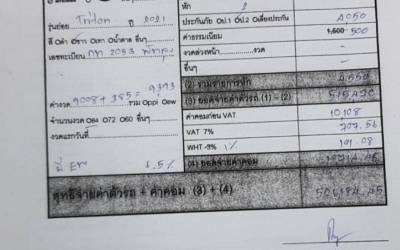 หัก
รุ่นย่อย Triton ปี 2021
ประกันภัย ป.1 ป.2 เบี้ยประกัน 4050
สี ดำ ขาว เทา น้ำตาล อื่นๆ
ค่าธรรมเนียม 1,500 500
เลขทะเบียน 2053
งวดล่วงหน้า งวด
อื่นๆ
(2) รวมรายการหัก 4,550
ค่างวด 9008 + 385 = 9393 รวม Oppi Oew
(3) ยอดจ่ายค่าตัวรถ (1) - (2) 515,420
จำนวนงวด O84 O72 O60 อื่นๆ
ค่าคอมก่อน VAT 10,108
งวดแรกวันที่
VAT 7% 707.56
WHT -3% 1% 101.08
มี EW 4.5%
(4) ยอดจ่ายค่าคอม
สุทธิจ่ายค่าตัวรถ + ค่าคอม (3) + (4)